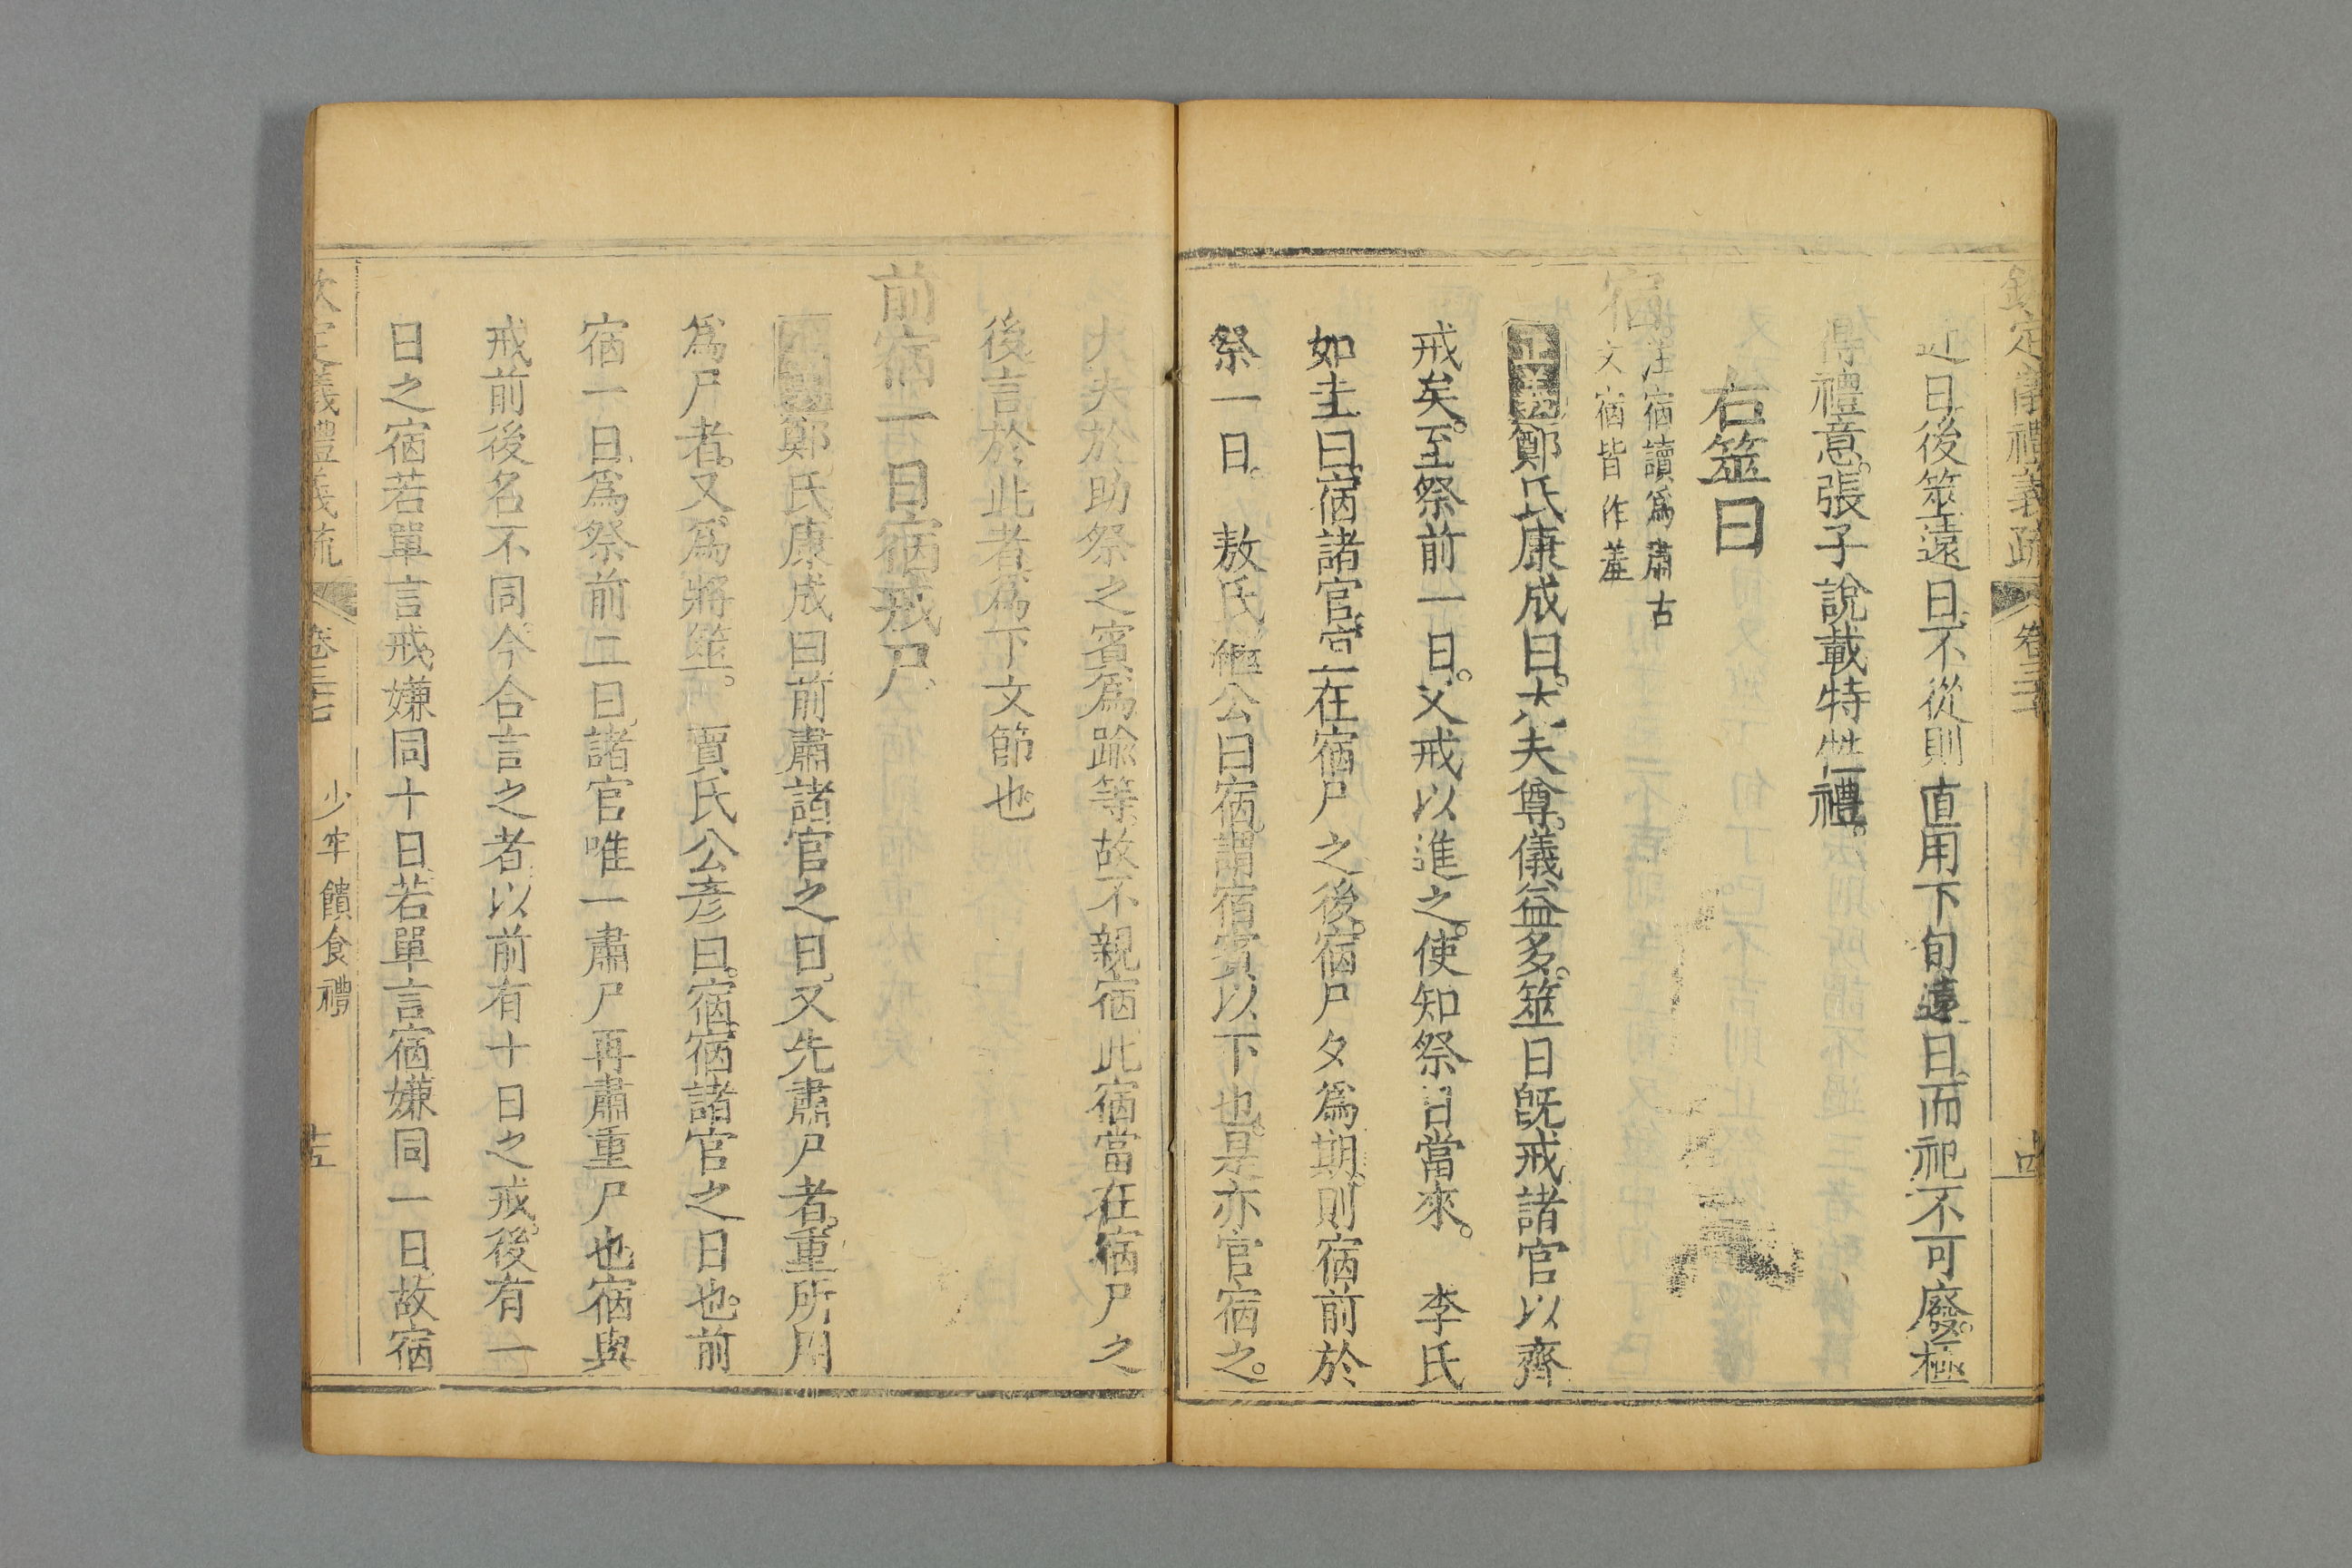 欽定儀禮義疏 卷三十七 十四
近日後筮遠日不從則直用下旬遠日而祀不可廢。極
得禮意。張子說載特牲禮。
右筮日
宿。注宿讀爲肅古
文宿皆作羞
正義鄭氏康成曰。大夫尊。儀益多。筮日旣戒諸官以齊
戒矣。至祭前一日。又戒以進之。使知祭日當來。 李氏
如圭曰。宿諸官宜在宿尸之後。宿尸夕爲期。則宿前於
祭一日。 敖氏繼公曰宿。謂宿賓以下也。是亦官宿之。
大夫於助祭之賓爲踰等。故不親宿此宿當在宿尸之
後言於此者爲下文節也
前宿一日宿戒尸。
正義鄭氏康成曰。前肅諸官之日。又先肅尸者。重所用
爲尸者。又爲將筮。 賈氏公彥曰。宿。宿諸官之日也。前
宿一日。爲祭前二日。諸官唯一肅尸再肅重尸也宿與
戒前後名不同。今合言之者以前有十日之戒。後有一
日之宿若單言戒。嫌同十日。若單言宿嫌同一日。故宿
欽定儀禮義疏 卷三十七 少牢饋食禮 十五